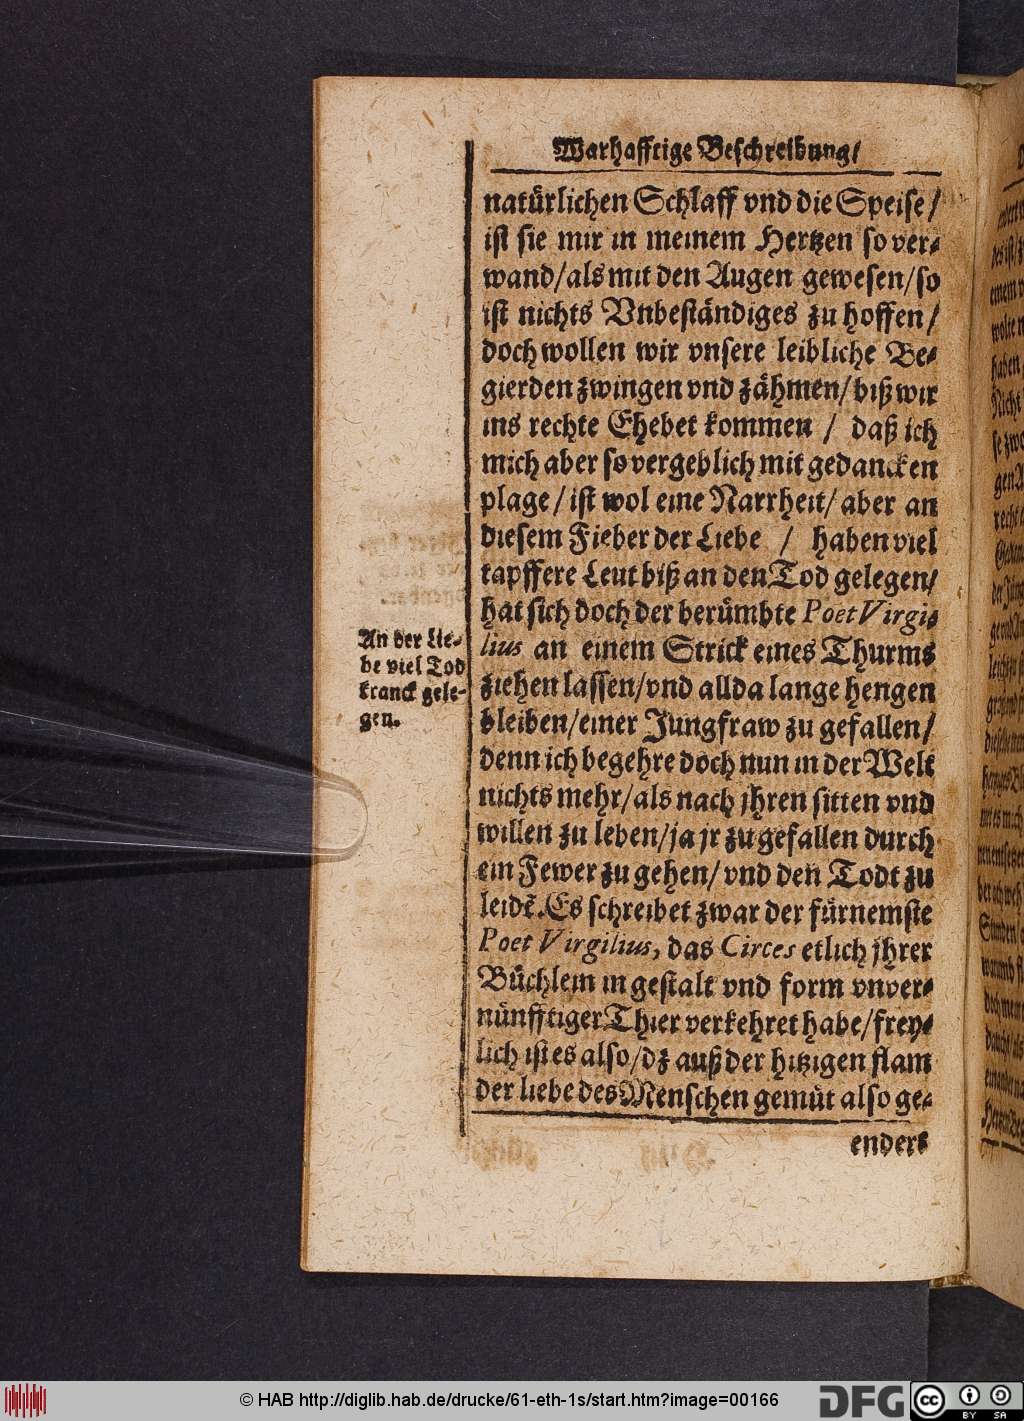 Warhafftige Beschreibung/
natürlichen Schlaff vnd die Speise/
ist sie mir in meinem Hertzen so ver-
wand/als mit den Augen gewesen/so
ist nichts Vnbeständiges zu hoffen/
doch wollen wir vnsere leibliche Be-
gierden zwingen vnd zähmen/biß wir
ins rechte Ehebet kommen / daß ich
mich aber so vergeblich mit gedancken
plage/ist wol eine Narrheit/aber an
diesem Fieber der Liebe / haben viel
tapffere Leut biß an den Tod gelegen/
hat sich doch der berümbte Poet Virgi-
lius an einem Strick eines Thurms
ziehen lassen/vnd allda lange hengen
bleiben/einer Jungfraw zu gefallen/
denn ich begehre doch nun in der Welt
nichts mehr/als nach jhren sitten vnd
willen zu leben/ja jr zu gefallen durch
ein Fewer zu gehen/vnd den Todt zu
leidẽ. Es schreibet zwar der fürnemste
Poet Virgilius, das Circes etlich jhrer
Büchlein in gestalt vnd form vnver-
nünfftiger Thier verkehret habe/frey-
lich ist es also/dz auß der hitzigen flam
der liebe des Menschen gemüt also ge-
endert
An der Lie-
be viel Tod
kranck gele-
gen.
© HAB http://diglib.hab.de/drucke/61-eth-1s/start.htm?image=00166
DFG
cc
BY SA